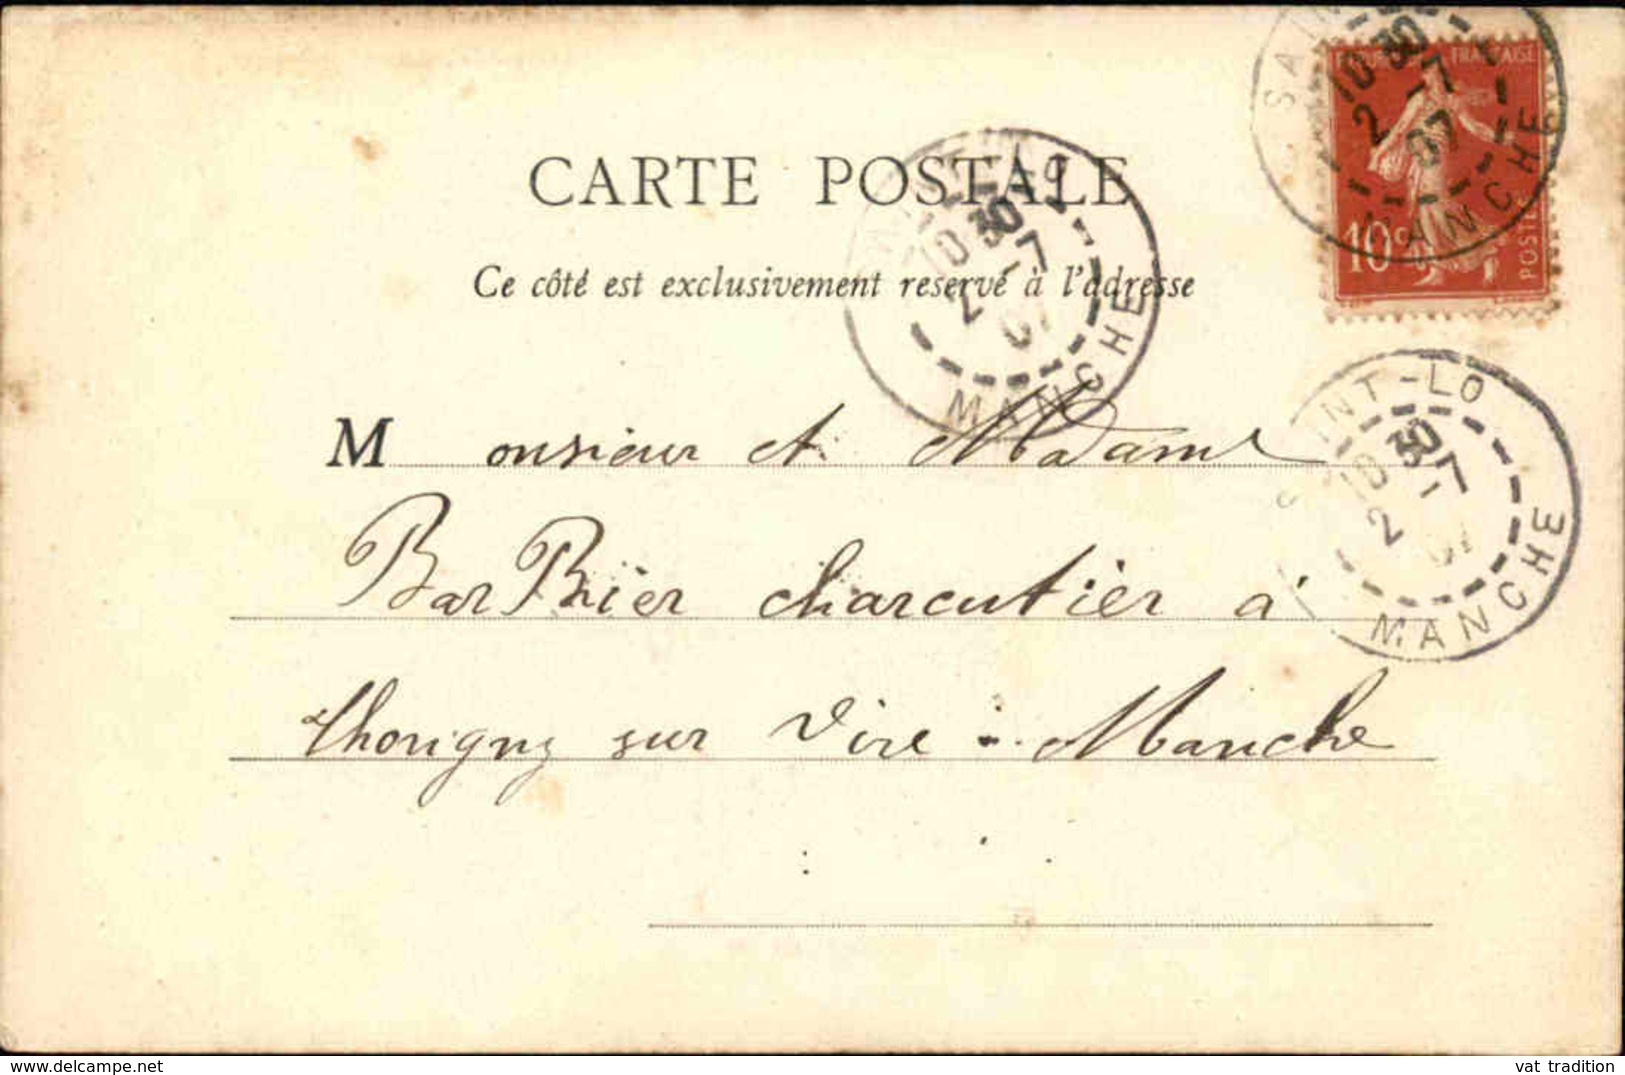 SAINT
10 30
2 -7
07
MANCHE
FRANÇAISE
10c
POSTES
CARTE POSTALE
Ce côté est exclusivement reservé à l'adresse
10 30
2 -7
07
MANCHE
SAINT-LO
10 30
2 -7
07
MANCHE
Monsieur et Madame
BarBier charcutièr à
thorigny sur Vire - Manche
vat tradition